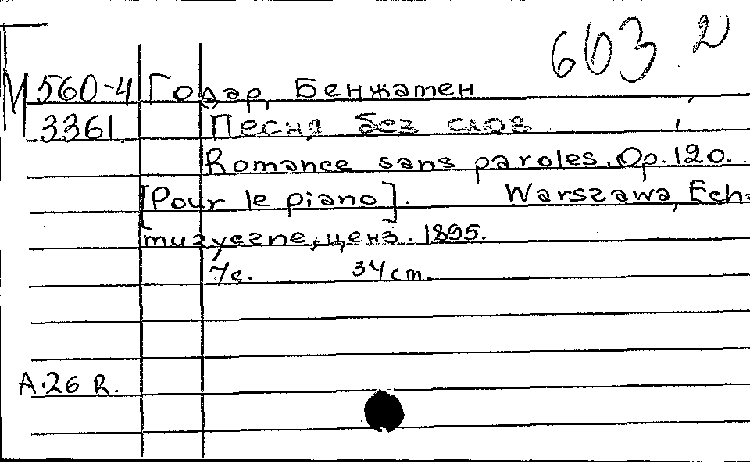 603.2
М 560-4 Годар, Бенжамен
3361 Песня без слов
Romance sans paroles. Op. 120.
[Pour le piano]. Warszawa, Echo
muzyczne, ценз. 1895.
7 с. 34 cm.
A.26 R.